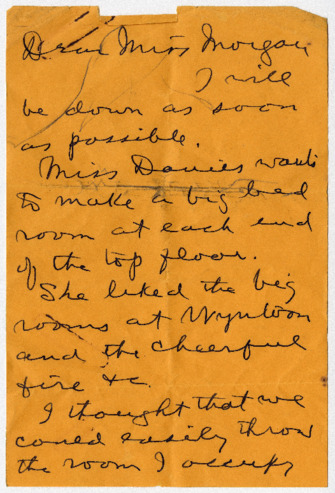 Dear Miss Morgan
I will
be down as soon
as possible.
Miss Davies wants
to make a big bed
room at each end
of the top floor.
She liked the big
rooms at Wyntoon
and the cheerful
fire &c.
I thought that we
could easily throw
the room I occupy